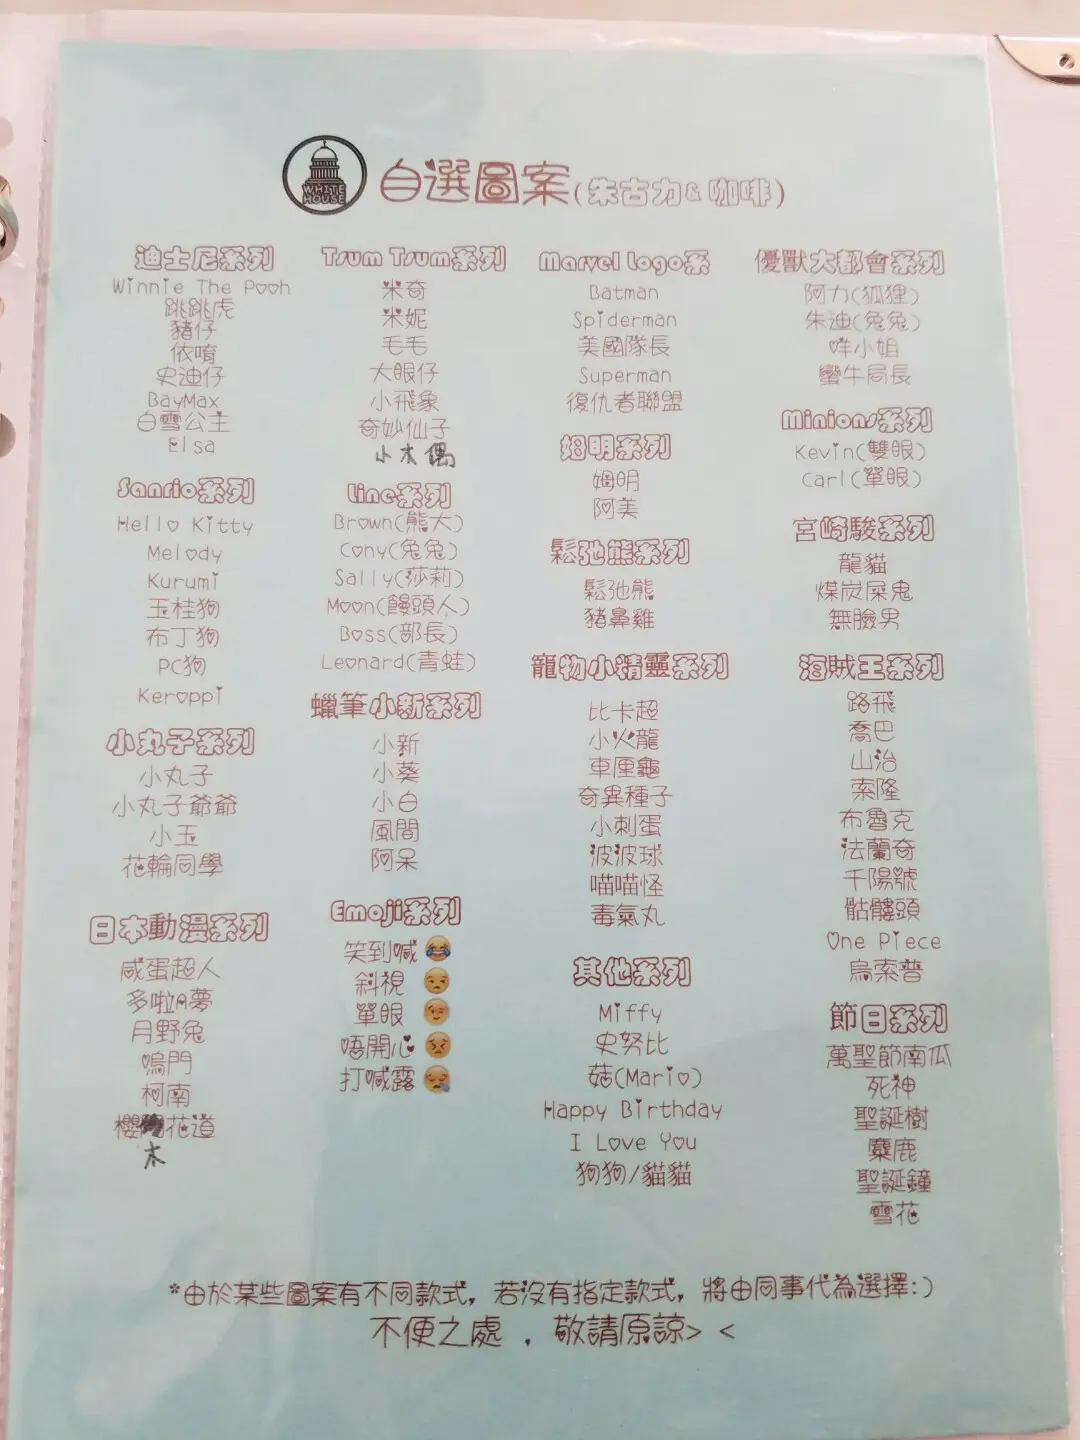 WHITE
HOUSE
自選圖案(朱古力&咖啡)
迪士尼系列
Winnie The Pooh
跳跳虎
豬仔
依唷
史迪仔
BayMax
白雪公主
Elsa
Sanrio系列
Hello Kitty
Melody
Kurumi
玉桂狗
布丁狗
PC狗
Keroppi
小丸子系列
小丸子
小丸子爺爺
小玉
花輪同學
日本動漫系列
咸蛋超人
多啦A夢
月野兔
嗚門
柯南
櫻花道
木
Tsum Tsum系列
米奇
米妮
毛毛
大眼仔
小飛象
奇妙仙子
小木偶
Line系列
Brown(熊大)
Cony(兔兔)
Sally(莎莉)
Moon(饅頭人)
Boss(部長)
Leonard(青蛙)
蠟筆小新系列
小新
小葵
小白
風間
阿呆
Emoji系列
笑到喊😂
斜視😒
單眼😉
唔開心😣
打喊露😪
Marvel Logo系
Batman
Spiderman
美國隊長
Superman
復仇者聯盟
姆明系列
姆明
阿美
鬆弛熊系列
鬆弛熊
豬鼻雞
寵物小精靈系列
比卡超
小火龍
車厘龜
奇異種子
小刺蛋
波波球
喵喵怪
毒氣丸
其他系列
Miffy
史努比
菇(Mario)
Happy Birthday
I Love You
狗狗/貓貓
優獸大都會系列
阿力(狐狸)
朱迪(兔兔)
咩小姐
蠻牛局長
Minions系列
Kevin(雙眼)
Carl(單眼)
宮崎駿系列
龍貓
煤炭屎鬼
無臉男
海賊王系列
路飛
喬巴
山治
索隆
布魯克
法蘭奇
千陽號
骷髏頭
One Piece
烏索普
節日系列
萬聖節南瓜
死神
聖誕樹
麋鹿
聖誕鐘
雪花
*由於某些圖案有不同款式，若沒有指定款式，將由同事代為選擇:)
不便之處，敬請原諒> <